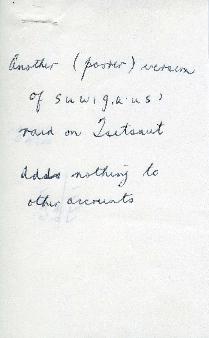 Another (poorer) version
of suwiga·us'
raid on Tsetsaut
Adds nothing to
other accounts